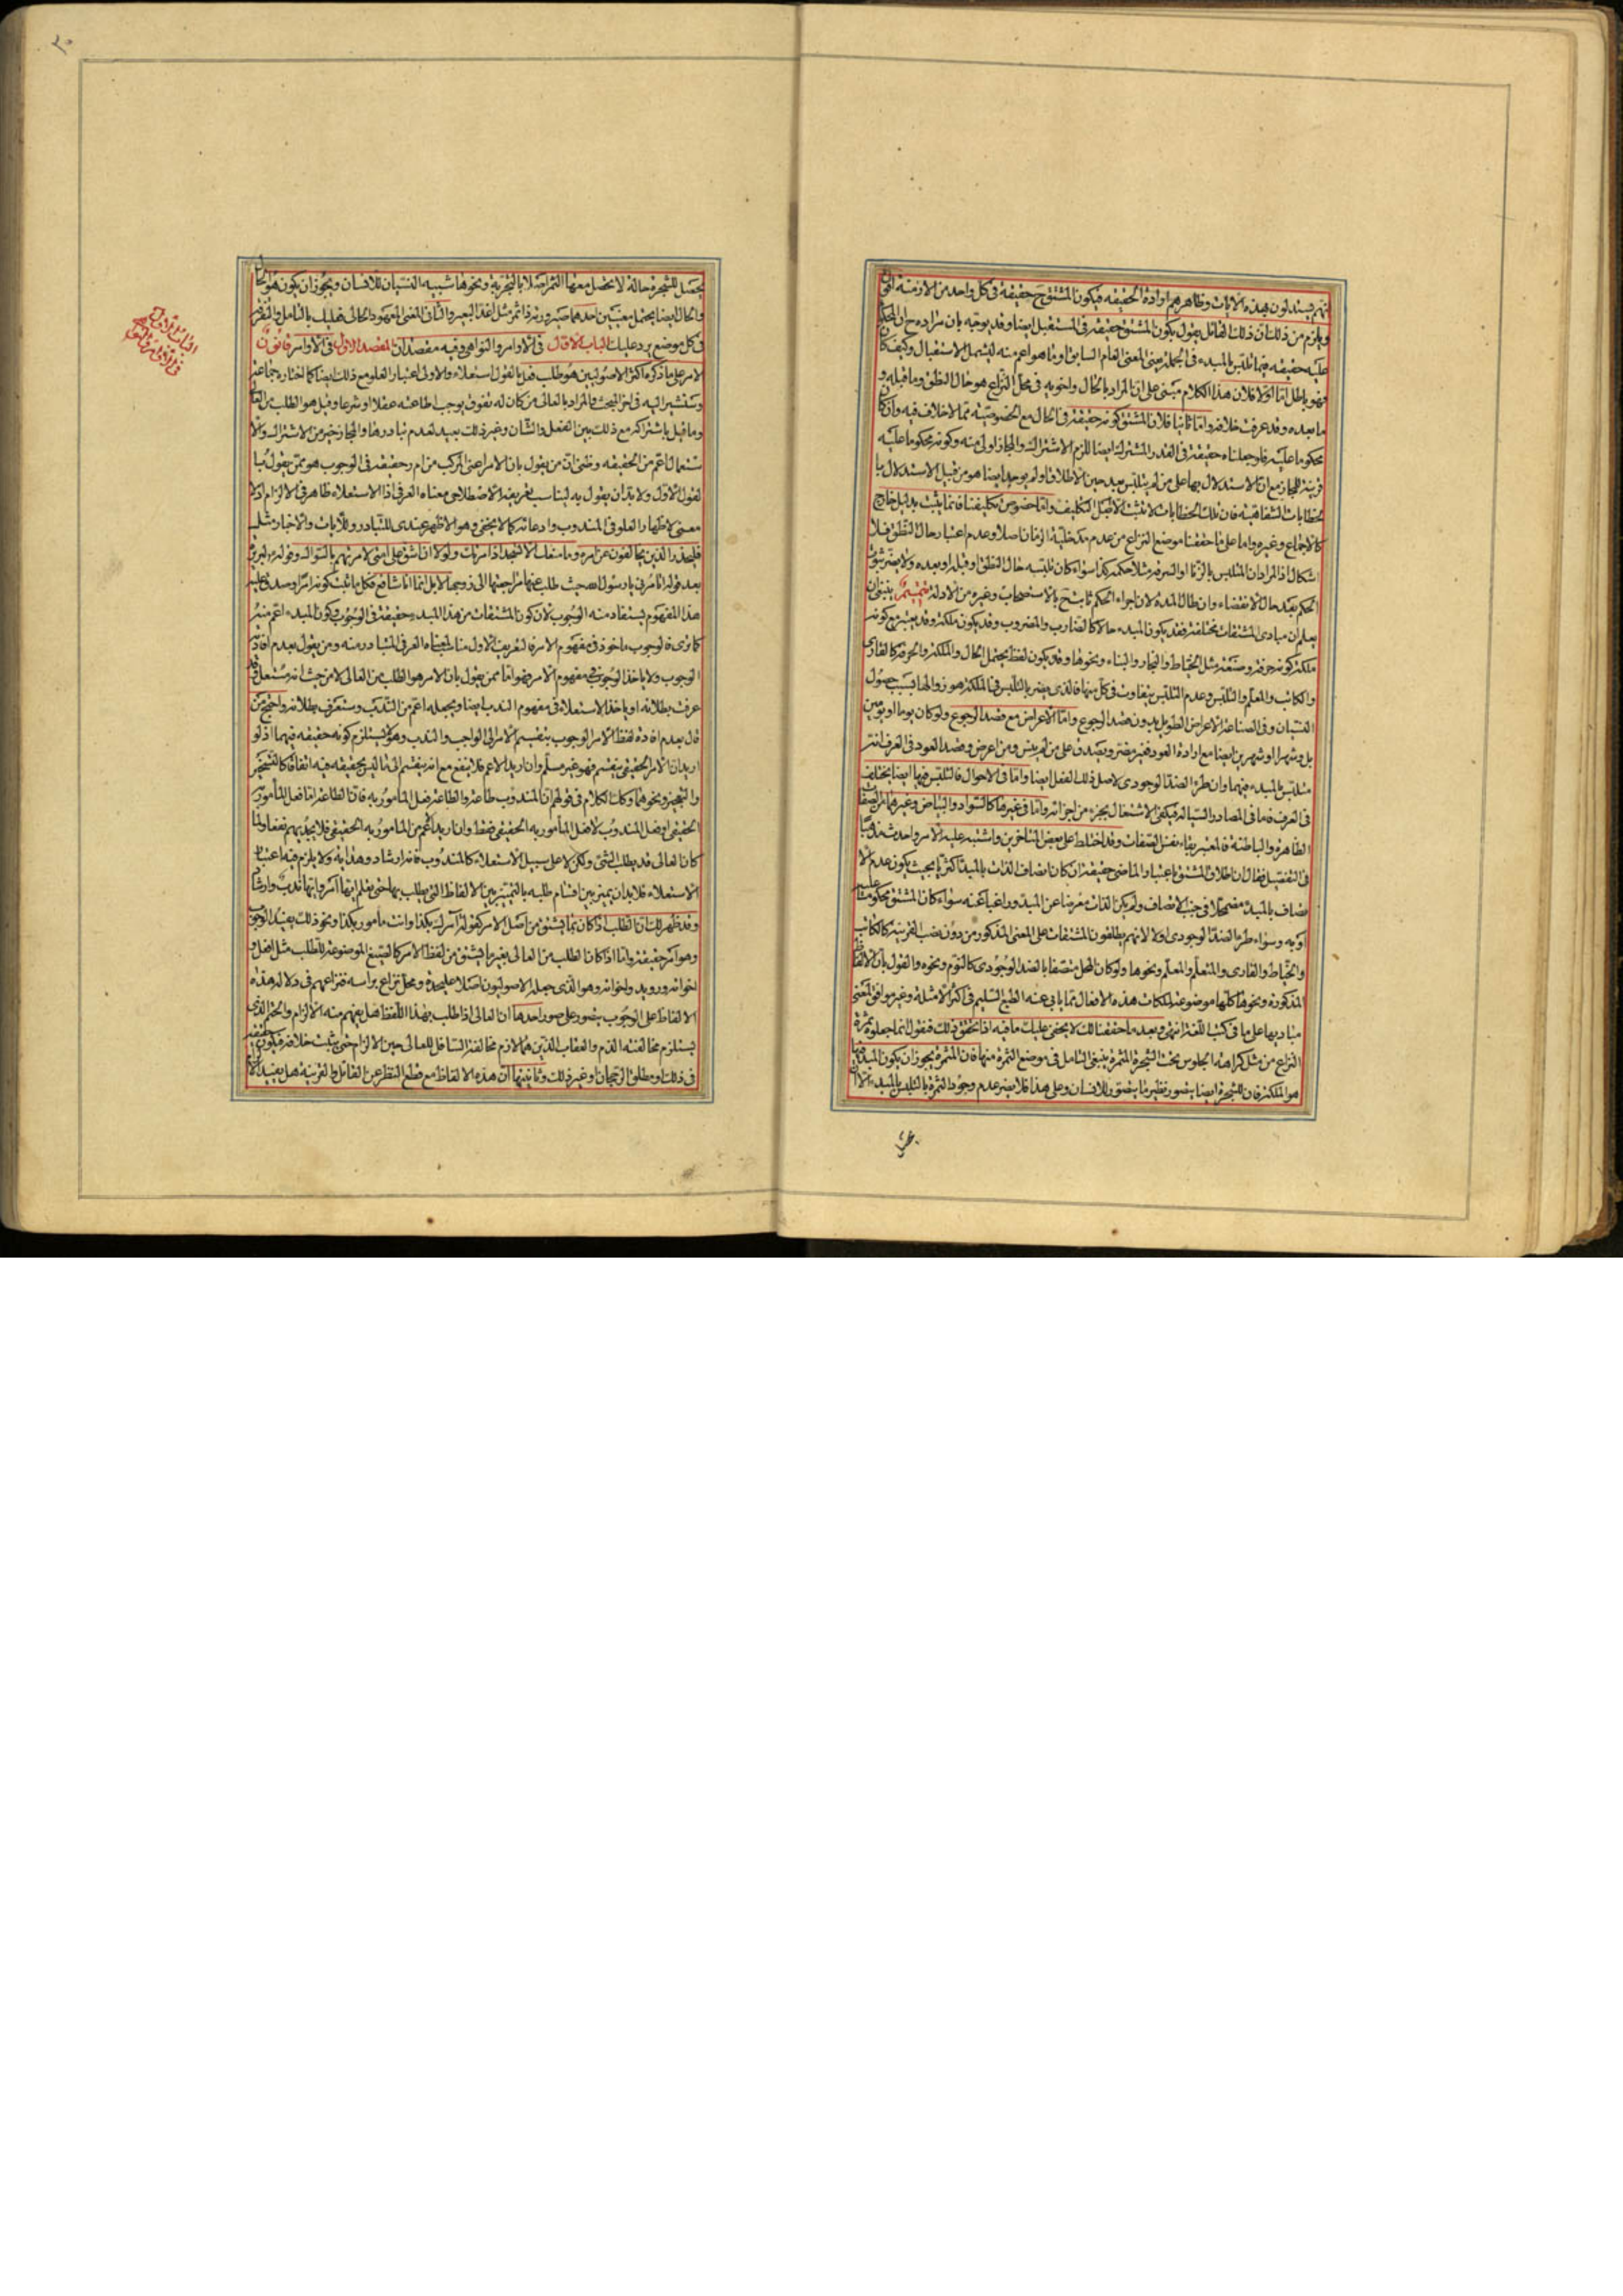 انهم يستدلون بهذه الايات وظاهرهم ارادة الحقيقة فيكون المشتق ح حقيقة في كل واحد من الازمنة
ويلزم من ذلك ان ذلك القائل يقول بكون المشتق حقيقة في المستقبل ايضا وقد يوجه بان مراده ح ان المحكوم
عليه حقيقة فيما تلبس بالمبدء في الجملة يعني المعنى العام السابق او ما هو اعم منه ليشمل الاستقبال وكيف كان
فهو باطل اما اولا فلان هذا الكلام مبني على ان المراد بالحال واخويه في محل النزاع هو حال النطق وما قبله و
ما بعده وقد عرفت خلافه واما ثانيا فلان المشتق كونه حقيقة في الحال مع الخصوصية مما لا خلاف فيه وان كان
محكوما عليه فلو جعلناه حقيقة في القدر المشترك ايضا للزم الاشتراك والمجاز اولى منه وكونه محكوما عليه
قرينة للمجاز مع ان الاستدلال بها على من لم يتلبس بعد حين الاطلاق او لم يوجد ايضا هو من قبيل الاستدلال با
لخطابات الشفاهية فان تلك الخطابات لا تثبت الا اصل التكليف واما خصوص تكليفنا فانما يثبت بدليل خارج
كالاجماع وغيره واما على ما حققنا موضع النزاع من عدم مدخلية الزمان اصلا وعدم اعتبار حال النطق فلا
اشكال اذ المراد ان المتلبس بالزنا او السرقة مثلا حكمه كذا سواء كان تلبسه حال النطق او قبله او بعده ولا يضر ثبوت
الحكم بعد حال الانقضاء وان طال المدة لان اجراء الحكم ثابت ح بالاستصحاب وغيره من الادلة تتميم ينبغي ان
يعلم ان مبادى المشتقات مختلفة فقد يكون المبدء حالا كالضارب والمضروب وقد يكون ملكة وقد يعتبر مع كونه
ملكة كونه حرفة وصنعة مثل الخياط والنجار والبناء ونحوها وقد يكون لفظ يحتمل الحال والملكة والحرفة كالقارى
والكاتب والمعلم والتلبس وعدم التلبس يتفاوت في كل منها فالذى يضر بالتلبس في الملكة هو زوالها بسبب حصول
النسيان وفي الصناعة الاعراض الطويل بدون قصد الرجوع واما الاعراض مع قصد الرجوع ولو كان يوما او يومين
بل وشهرا او شهرين ايضا مع ارادة العود فغير مضر ويصدق على من لم ينس ومن اعرض وقصد العود في العرف انه
متلبس بالمبدء فيهما وان طرء الضد الوجودى لاصل ذلك الفعل ايضا واما في الاحوال فالتلبس فيها ايضا يختلف
في العرف فاما في المصادر السيالة فيكفى الاشتغال بجزء من اجزائه واما في غيرها كالسواد والبياض وغيرهما من الصفات
الظاهرة والباطنة فالمعتبر بقاء نفس الصفات وقد اختلط على بعض المتاخرين واشتبه عليه الامر واحدث مذهبا
في التفصيل فقال ان اطلاق المشتق باعتبار الماضى حقيقة ان كان اتصاف الذات بالمبدا اكثريا بحيث يكون عدم الا
تصاف بالمبدء مضمحلا في جنب الاتصاف ولم يكن الذات معرضا عن المبدء وراغبا عنه سواء كان المشتق محكوما عليه
او به وسواء طرء الضد الوجودى اولا لانهم يطلقون المشتقات على المعنى المذكور من دون نصب القرينة كالكاتب
والخياط والقارى والمتعلم والمعلم ونحوها ولو كان المحل متصفا بالضد الوجودى كالنوم ونحوه والقول بان الالفاظ
المذكورة ونحوها كلها موضوعة لملكات هذه الافعال مما يابى عنه الطبع السليم في اكثر الامثلة وغير موافق لمعنى
مباديها على ما في كتب اللغة انتهى وبعد ما حققنا لك لا يخفى عليك ما فيه اذا تحقق ذلك فنقول انما جعلوه ثمرة
النزاع من مثل كراهة الجلوس تحت الشجرة المثمرة ينبغي التامل في موضع الثمرة منها فان المثمرة يجوز ان يكون المبدء فيها
هو الملكة فان للشجرة ايضا يتصور نظير ما يتصور للانسان وعلى هذا فلا يضر عدم وجود الثمرة بالتلبس بالمبدء الا ان
يحصل للشجرة حالة لا تحصل معها الثمر اصلا بالتجربة ونحوها شبيه النسيان للانسان ويجوز ان يكون هو الحال
والحال ايضا يحتمل معنيين احدهما صيرورته ذا ثمر مثل اغد البعير والثانى المعنى المعهود الحالى فعليك بالتامل والتفرقة
في كل موضع يرد عليك الباب الاول في الاوامر والنواهى وفيه مقصدان المقصد الاول في الاوامر قانون
الامر على ما ذكره اكثر الاصوليين هو طلب فعل بالقول استعلاء والاولى اعتبار العلو مع ذلك ايضا كما اختاره جماعة
وسنشير اليه في اخر المبحث والمراد بالعالى من كان له تفوق يوجب اطاعته عقلا او شرعا وقيل هو الطلب من العالى
وما قيل باشتراكه مع ذلك بين الفعل والشان وغير ذلك بعيد لعدم تبادرها والمجاز خير من الاشتراك والا
ستعمال اعم من الحقيقة وظنى ان من يقول بان الامر اعنى المركب من ا م ر حقيقة في الوجوب هو ممن يقول با
لقول الاول ولا بد ان يقول به ليناسب تعريفه الاصطلاحى معناه العرفى اذ الاستعلاء ظاهر في الالزام اذ لا
معنى لاظهار العلو في المندوب وادعائه كما لا يخفى وهو الاظهر عندى للتبادر وللآيات والاخبار مثل
فليحذر الذين يخالفون عن امره وما منعك الا تسجد اذ امرتك ولولا ان اشق على امتى لامرتهم بالسواك وقوله لبريرة
بعد قولها اتامرنى يا رسول الله حيث طلب عنها مراجعتها الى زوجها لا بل انما انا شافع فكل ما ثبت كونه امرا وصدق عليه
هذا المفهوم يستفاد منه الوجوب لان كون المشتقات من هذا المبدء حقيقة في الوجوب وكون المبدء اعم منه
كما ترى فالوجوب ماخوذ في مفهوم الامر فالتعريف الاول مناسب لمعناه العرفى المتبادر منه ومن يقول بعدم افادة
الوجوب ولا ياخذ الوجوب في مفهوم الامر فهو اما ممن يقول بان الامر هو الطلب من العالى لا من حيث انه مستعل وقد
عرفت بطلانه او ياخذ الاستعلاء في مفهوم الندب ايضا ويجعله اعم من الندب وستعرف بطلانه واحتج من
قال بعدم افادة لفظ الامر الوجوب بتقسيم الامر الى الواجب والندب وهو لا يستلزم كونه حقيقة فيهما اذ لو
اريد ان الامر الحقيقى ينقسم فهو غير مسلم وان اريد الاعم فلا ينفع مع انه ينقسم الى ما ليس بحقيقة فيه اتفاقا كالتسخير
والتعجيز ونحوهما وكذا الكلام في قولهم ان المندوب طاعة والطاعة فعل المامور به فان الطاعة اما فعل المامور به
الحقيقى او فعل المندوب لا فعل المامور به الحقيقى فقط وان اريد اعم من المامور به الحقيقى فلا يجديهم نفعا ولما
كان العالى قد يطلب الشئ ولكن لا على سبيل الاستعلاء كالمندوب فانه ارشاد وهداية ولا يلزم فيه اعتبار
الاستعلاء فلا بد ان يميز بين اقسام طلبه بالتمييز بين الالفاظ التى يطلب بها حتى يعلم ايها امر وايها ندب وارشاد
وقد ظهر لك ان الطلب اذا كان بما يشتق من اصل الامر كقوله امرك بكذا وانت مامور بكذا ونحو ذلك يفيد الوجوب
وهو امر حقيقة واما اذا كان الطلب من العالى بغير ما يشتق من لفظ الامر كالصيغ الموضوعة للطلب مثل افعل و
اخواته ورويد واخواته وهو الذى جعله الاصوليون اصلا عليحدة ومحل نزاع براسه فنزاعهم في دلالة هذه
الالفاظ على الوجوب يتصور على صور احدها ان العالى اذا طلب بهذا اللفظ هل يفهم منه الالزام والحتم الذى
يستلزم مخالفته الذم والعقاب الذين هما لازم مخالفة السافل للعالى حين الالزام حتى يثبت خلافه فيكون حقيقة
في ذلك او مطلق الرجحان او غير ذلك وثانيتها ان هذه الالفاظ مع قطع النظر عن القائل والقرينة هل يفيد الا
الباب الاول
في الاوامر والنواهى